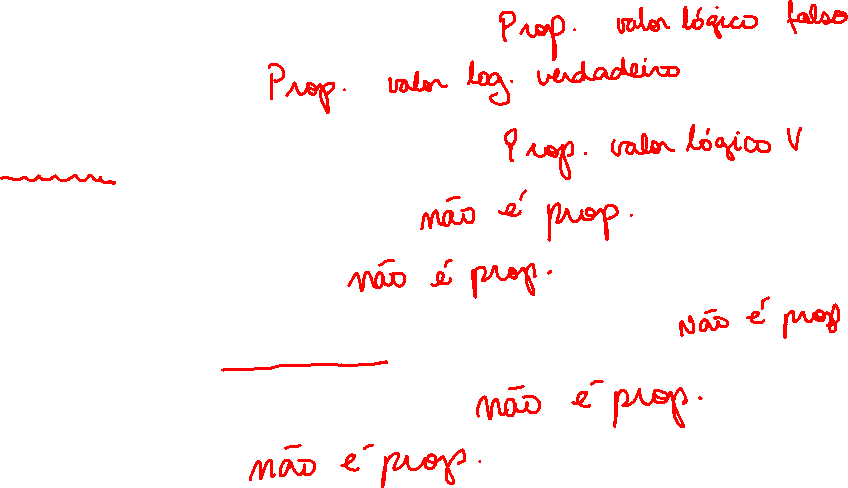 Prop. valor lógico falso
Prop. valor log. verdadeiro
Prop. valor lógico V
não é prop.
não é prop.
não é prop
não é prop.
não é prop.